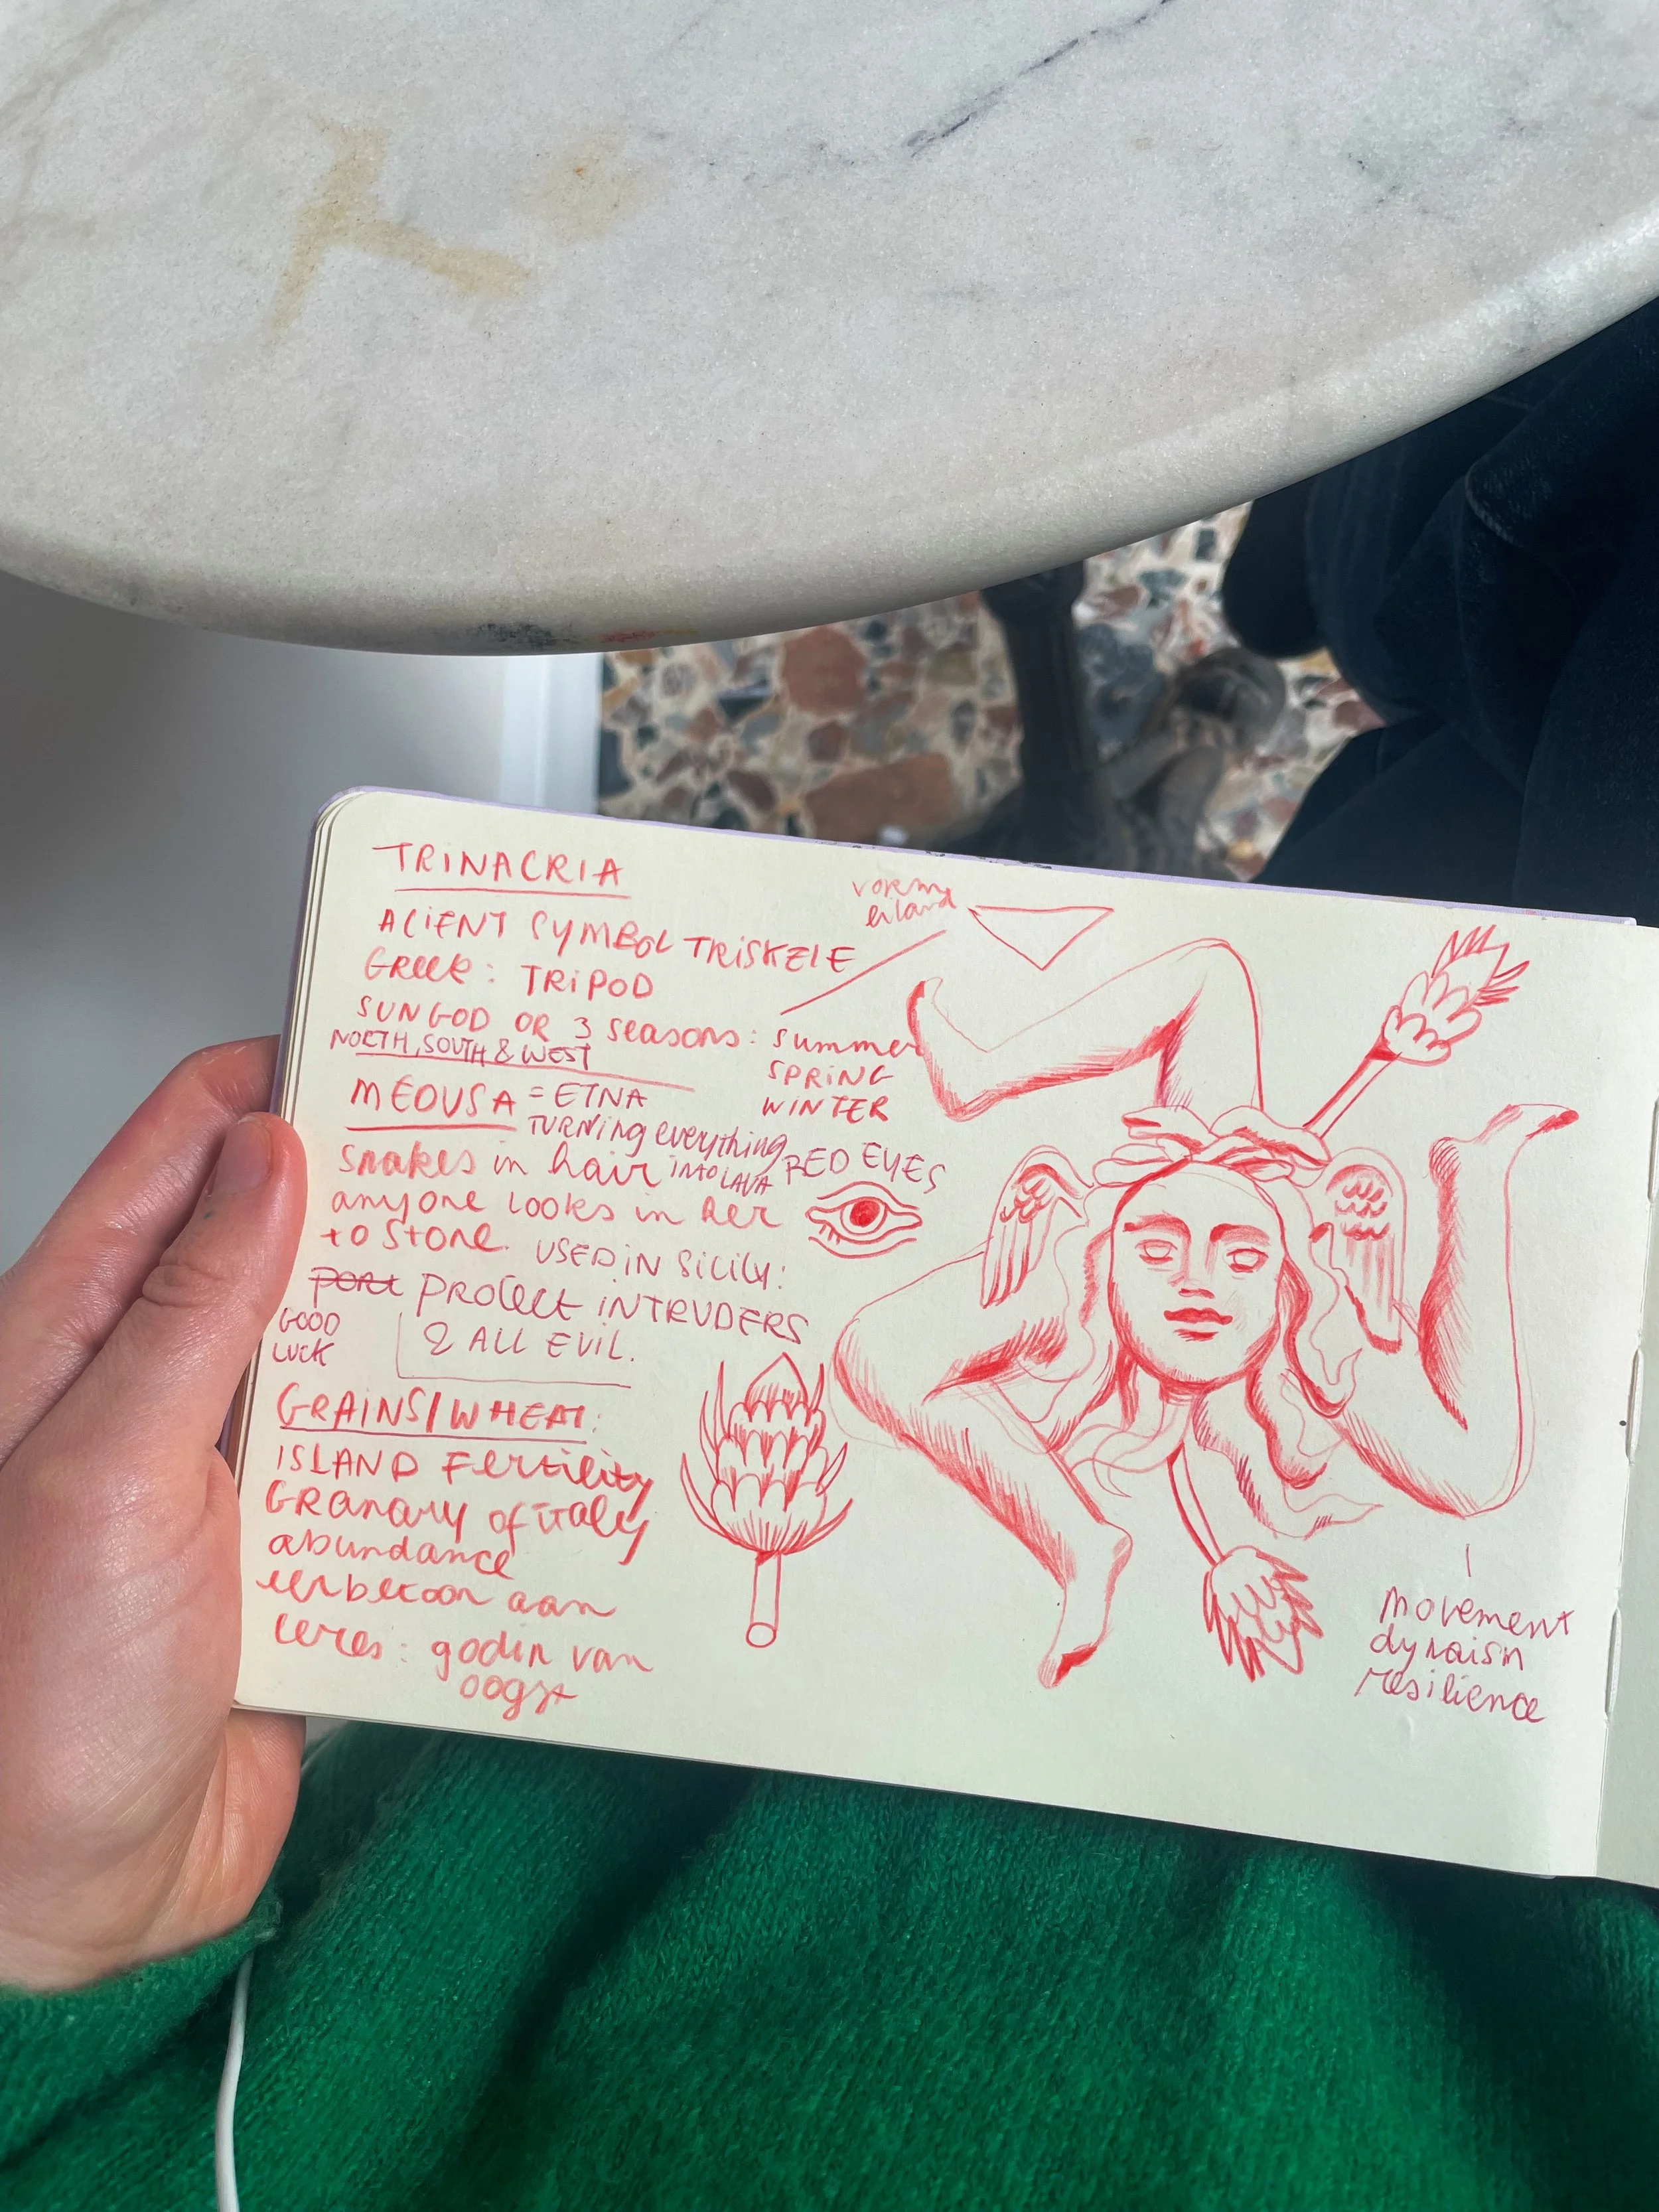 TRINACRIA
vorm
eiland
ACIENT SYMBOL TRISKELE
Greek: TRIPOD
SUN GOD OR 3 seasons: summer
SPRING
WINTER
NORTH, SOUTH & WEST
MEDUSA = ETNA
TURNING everything
INTO LAVA
RED EYES
Snakes in hair
anyone looks in her
to stone.
USED IN SICILY:
PROTECT INTRUDERS
& ALL EVIL.
GOOD
LUCK
GRAINS/WHEAT:
ISLAND Fertility
GRanary of italy
abundance
eerbetoon aan
ceres: godin van
oogst
movement
dynaisn
resilience